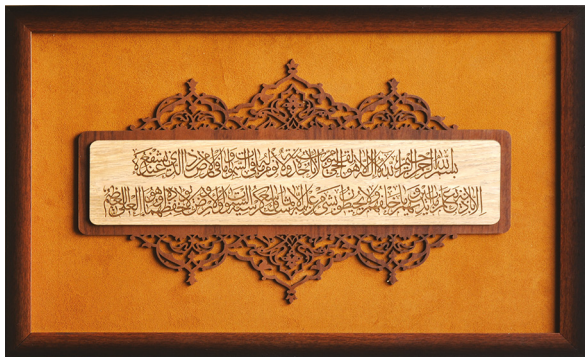 بسم الله الرحمن الرحيم الله لا اله الا هو الحي القيوم لا تأخذه سنة ولا نوم له ما في السموات وما في الارض من ذا الذي يشفع عنده
الا باذنه يعلم ما بين ايديهم وما خلفهم ولا يحيطون بشيء من علمه الا بما شاء وسع كرسيه السموات والارض ولا يؤده حفظهما وهو العلي العظيم